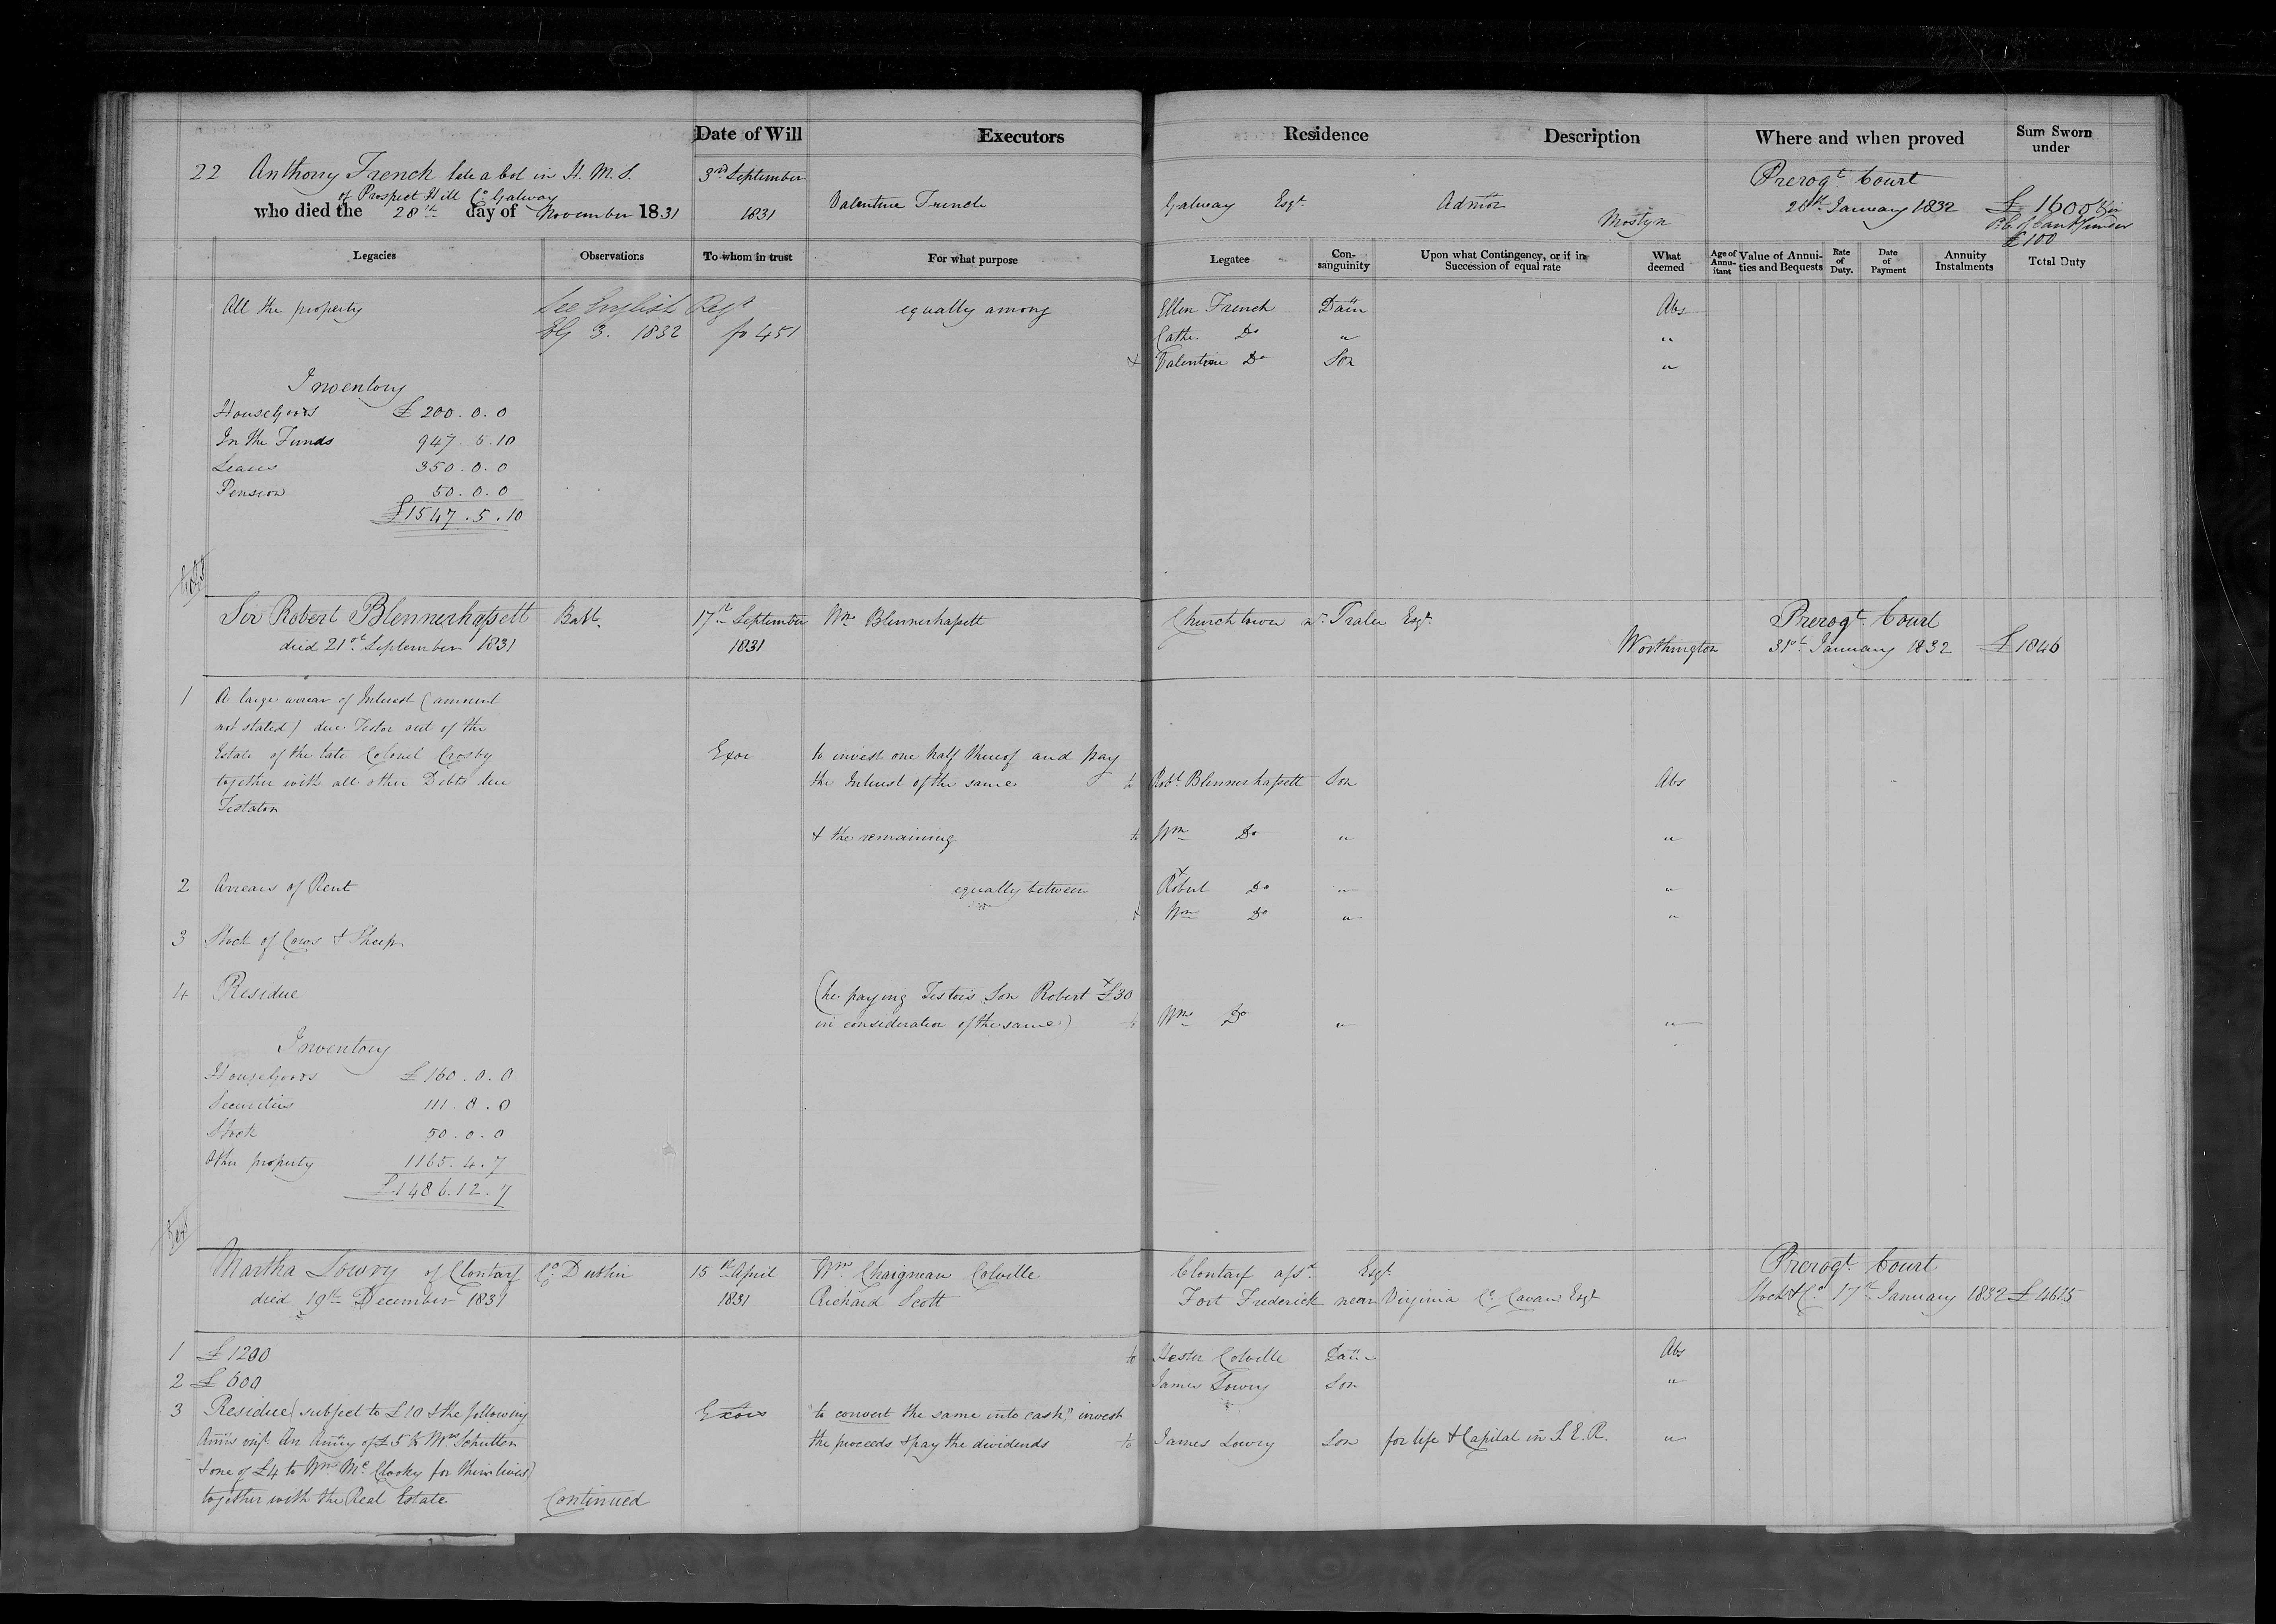 Date of Will Executors Residence Description Where and when proved Sum Sworn under
22 Anthony French late a Col in H. M. S. 3rd September Prerogt. Court
of Prospect Hill Co Galway
who died the 28th day of November 1831 1831 Valentine French Galway Esqr. Admor Mostyn 28th January 1832 £1600
£100
Legacies Observations To whom in trust For what purpose Legatee Con-sanguinity Upon what Contingency, or if in Succession of equal rate What deemed Age of Annu-itant Value of Annui-ties and Bequests Rate of Duty. Date of Payment Annuity Instalments Total Duty
All the property See English Regr equally among Ellen French Daur Abs
3. 1832 fo 451 Cathe. Do " "
& Valentine Do Son "
Inventory
House Goods £200.0.0
In the Funds 947.5.10
Leases 350.0.0
Pension 50.0.0
£1547.5.10
Sir Robert Blennerhassett Bart. 17th September Wm Blennerhassett Churchtown nr. Tralee Esqr. Prerogt. Court
died 21st September 1831 1831 Worthington 31st January 1832 £1846
1 A large arrear of Interest (amount
not stated) due Testor out of the
Estate of the late Colonel Crosby Exor to invest one half thereof and pay
together with all other Debts due the Interest of the same to Robt Blennerhassett Son Abs
Testator
& the remaining to Wm Do " "
2 Arrears of Rent equally between Robert Do " "
& Wm Do " "
3 Stock of Cows & Sheep
4 Residue (he paying Testors Son Robert £30
in consideration of the same) to Wm Do " "
Inventory
House Goods £160.0.0
Securities 111.8.0
Stock 50.0.0
Other property 1165.4.7
£1486.12.7
Martha Lowry of Clontarf Co. Dublin 15th April Wm Chaigneau Colville Clontarf afsd. Esqr. Prerogt. Court
died 19th December 1831 1831 Richard Scott Fort Frederick near Virginia Co. Cavan Esqr Stock & Co. 17th January 1832 £4615
1 £1200 to Hester Colville Daur Abs
2 £600 James Lowry Son "
3 Residue (subject to £10 & the following Exors "to convert the same into cash", invest
An Anuy of £5 to Mrs the proceeds & pay the dividends to James Lowry Son for life & Capital in S. E. R. "
& one of £4 to Wm Mc for their lives)
together with the Real Estate Continued